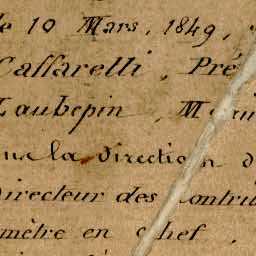 le 10 Mars, 1849,
Caffarelli, Pré
Laubepin, M
la direction d
Directeur des Contri
mètre en chef,